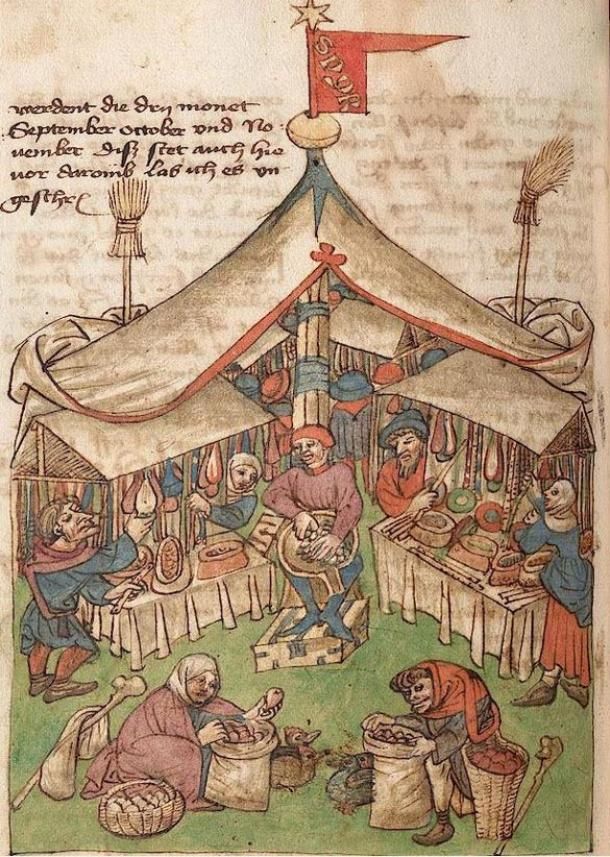 werdent die drij monet
September october vnd No-
uember Diß stet auch hie
vor daromb las ich es vn
geschr